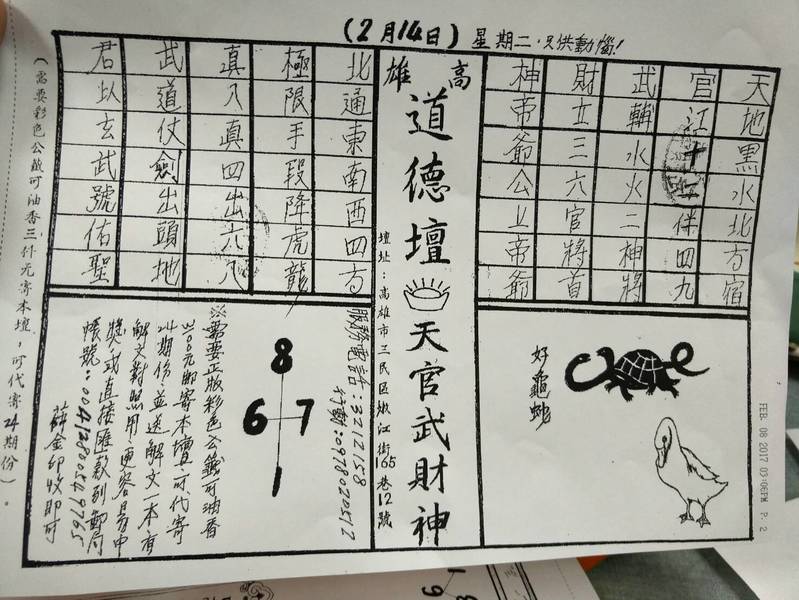 (2月14日) 星期二．只供動惱!
天地黑水北方宿
官江十二伴四九
武輔水火二神將
財立三六官將首
神帝爺公上帝爺
好龜蛇
高雄
道德壇
天官武財神
壇址：高雄市三民區嫩江街165巷12號
北通東南西四方
極限手段降虎龍
真八真四出六八
武道仗劍出頭地
君以玄武號佑聖
服務電話：3212158
行動：0978020512
8
6 7
1
※需要正版彩色公籤可油香
元郵寄本壇可代寄
24期份並送解文一本有
解文對照用更容易中
獎或直接匯款到郵局
帳號：
薛金印收即可
(需要彩色公籤可油香三仟元寄本壇，可代寄24期份)．
FEB. 08 2017 03:06PM P. 2